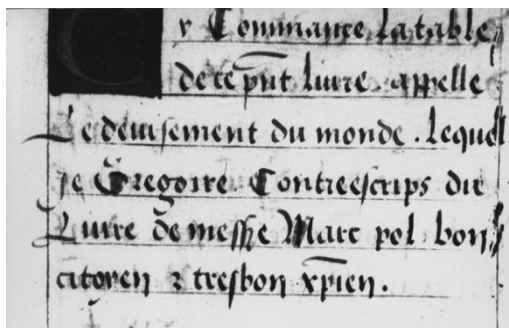 Cy Commance la table
de ce pnt liure appelle
Le deuisement du monde . lequel
je Gregoire Contreescrips du
Liure de messe Marc pol bon
citoyen & tresbon xpien .